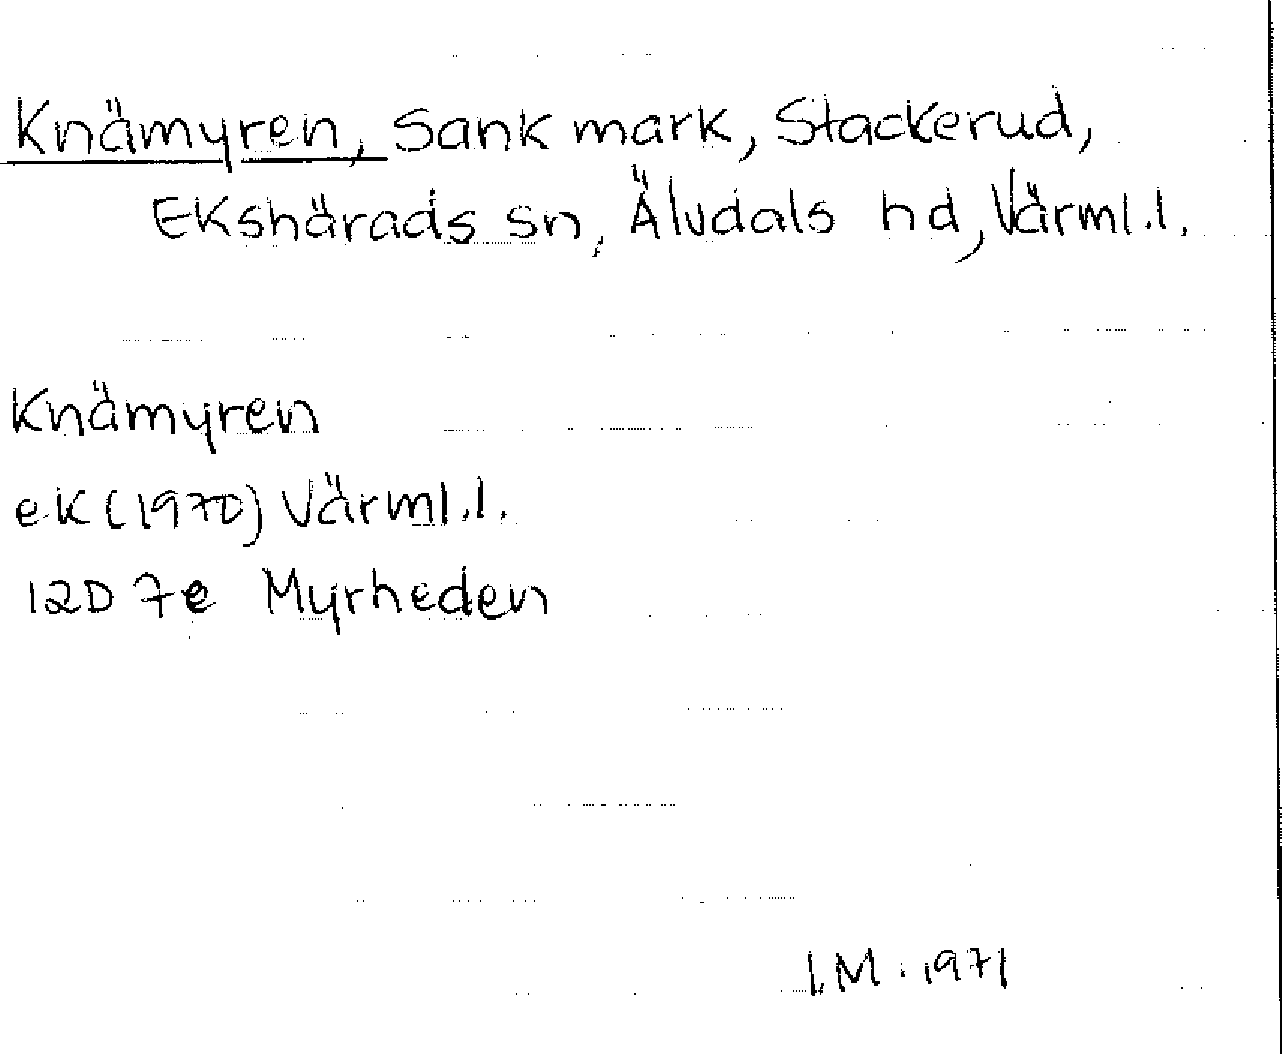 Knämyren, Sank mark, Stackerud,
Ekshärads sn, Älvdals hd, Värml.l.
Knämyren
ek (1970) Värml.l.
12D 7e Myrheden
I.M. 1971